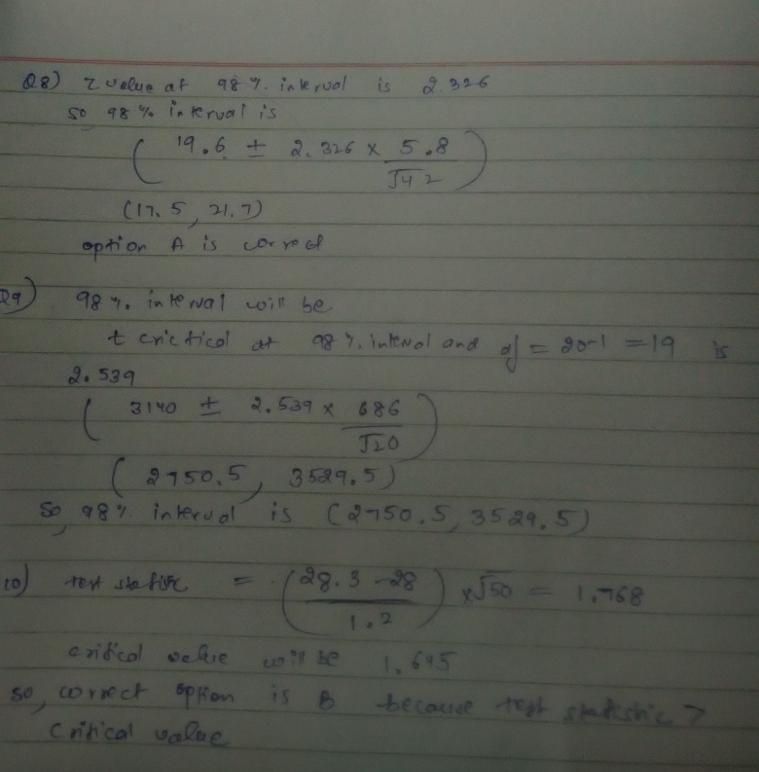 Q8) Z value at 98 %. interval is 2.326
so 98 % interval is
( 19.6 ± 2.326 × 5.8 / √42 )
(17.5, 21.7)
option A is correct
Q9) 98 %. interval will be
t crictical at 98 %. interval and df = 20-1 = 19 is
2.539
( 3140 ± 2.539 × 686 / √20 )
( 2750.5, 3529.5)
so, 98 % interval is (2750.5, 3529.5)
10) test statistic = ( 28.3 - 28 / 1.2 ) × √50 = 1.768
critical value will be 1.645
so, correct option is B because test statistic >
critical value